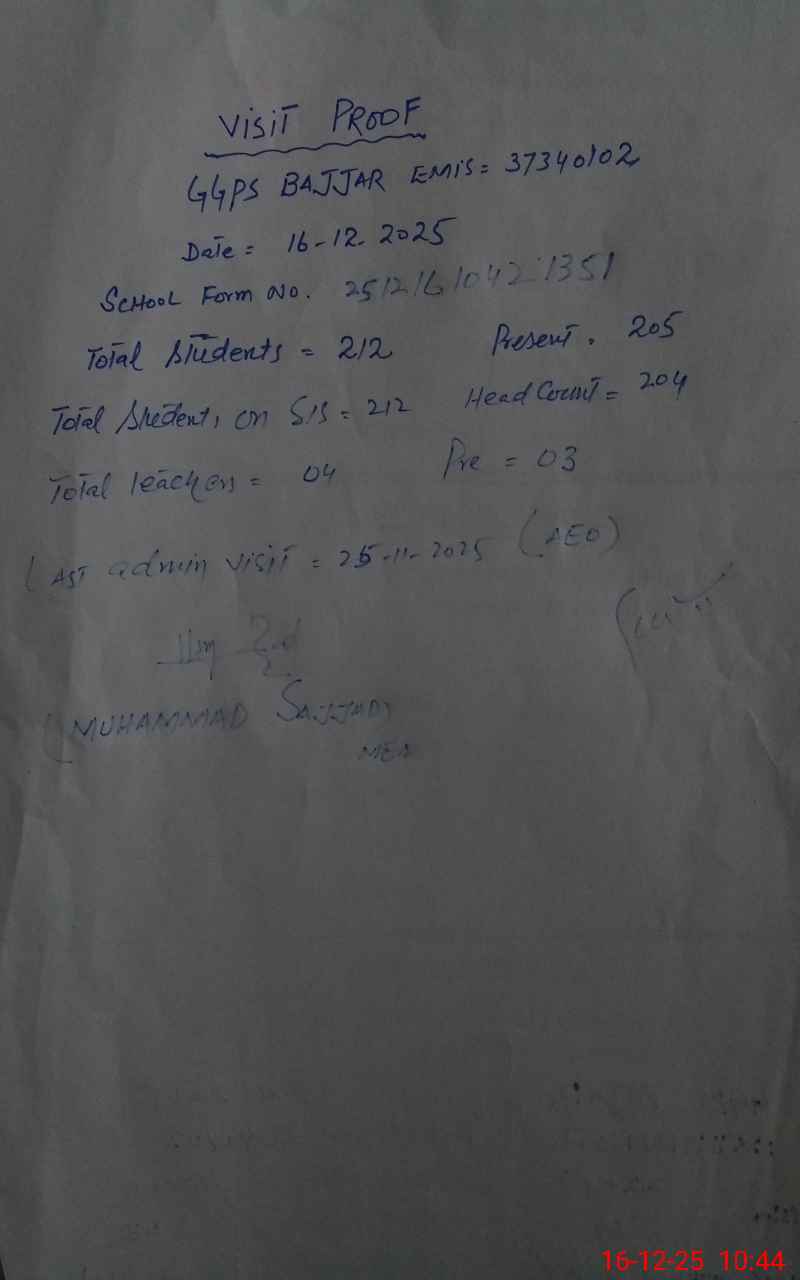 VISIT PROOF
GGPS BAJJAR EMIS= 37340102
Date = 16-12-2025
SCHOOL Form NO. 2512161042 1351
Total Students = 212 Present. 205
Total Students on SIS = 212 Head Count = 204
Total teachers = 04 Pre = 03
Last admin visit = 25-11-2025 (AEO)
(MUHAMMAD SAJJAD)
MEA
16-12-25 10:44